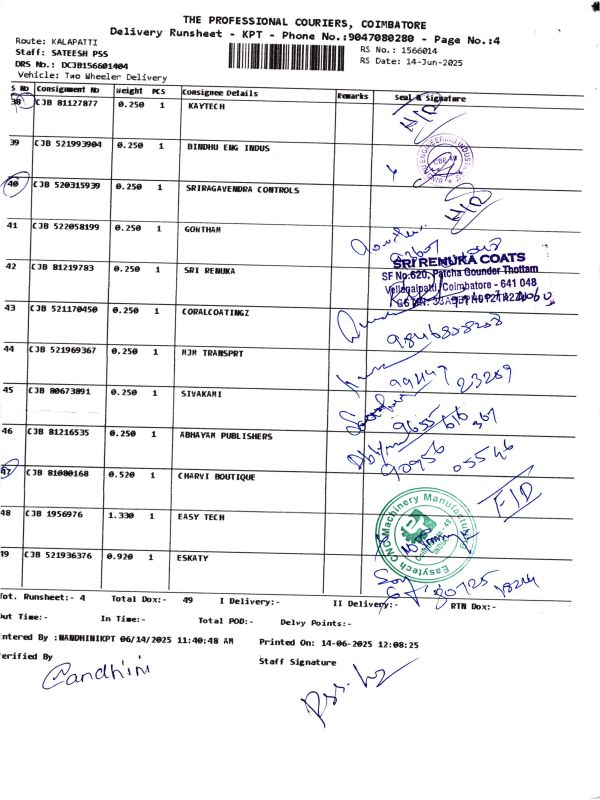 THE PROFESSIONAL COURIERS, COIMBATORE
Delivery Runsheet - KPT - Phone No.:9047080280 - Page No.:4
Route: KALAPATTI
RS No.: 1566014
Staff: SATEESH PSS
RS Date: 14-Jun-2025
DRS No.: DCJB156601404
Vehicle: Two Wheeler Delivery
S No Consignment No Weight PCS Consignee Details Remarks Seal & Signature
38 CJB 81127877 0.250 1 KAYTECH
39 CJB 521993904 0.250 1 BINDHU ENG INDUS
40 CJB 520315939 0.250 1 SRIRAGAVENDRA CONTROLS
41 CJB 522058199 0.250 1 GONTHAM
SRI RENUKA COATS
SF No:620, Patcha Gounder Thottam
Coimbatore - 641 048
42 CJB 81219783 0.250 1 SRI RENUKA
43 CJB 521170450 0.250 1 CORALCOATINGZ
44 CJB 521969367 0.250 1 MJM TRANSPRT
99447 23289
45 CJB 80673891 0.250 1 SIVAKAMI
9655 616 367
46 CJB 81216535 0.250 1 ABHAYAM PUBLISHERS
90956 05546
47 CJB 81080168 0.520 1 CHARVI BOUTIQUE
48 CJB 1956976 1.330 1 EASY TECH
Easytech CNC Machinery Manufacturers
19 CJB 521936376 0.920 1 ESKATY
Tot. Runsheet:- 4 Total Dox:- 49 I Delivery:- II Delivery:- RTN Dox:-
Out Time:- In Time:- Total POD:- Delvy Points:-
ntered By :NANDHINIKPT 06/14/2025 11:40:48 AM Printed On: 14-06-2025 12:08:25
erified By
Staff Signature